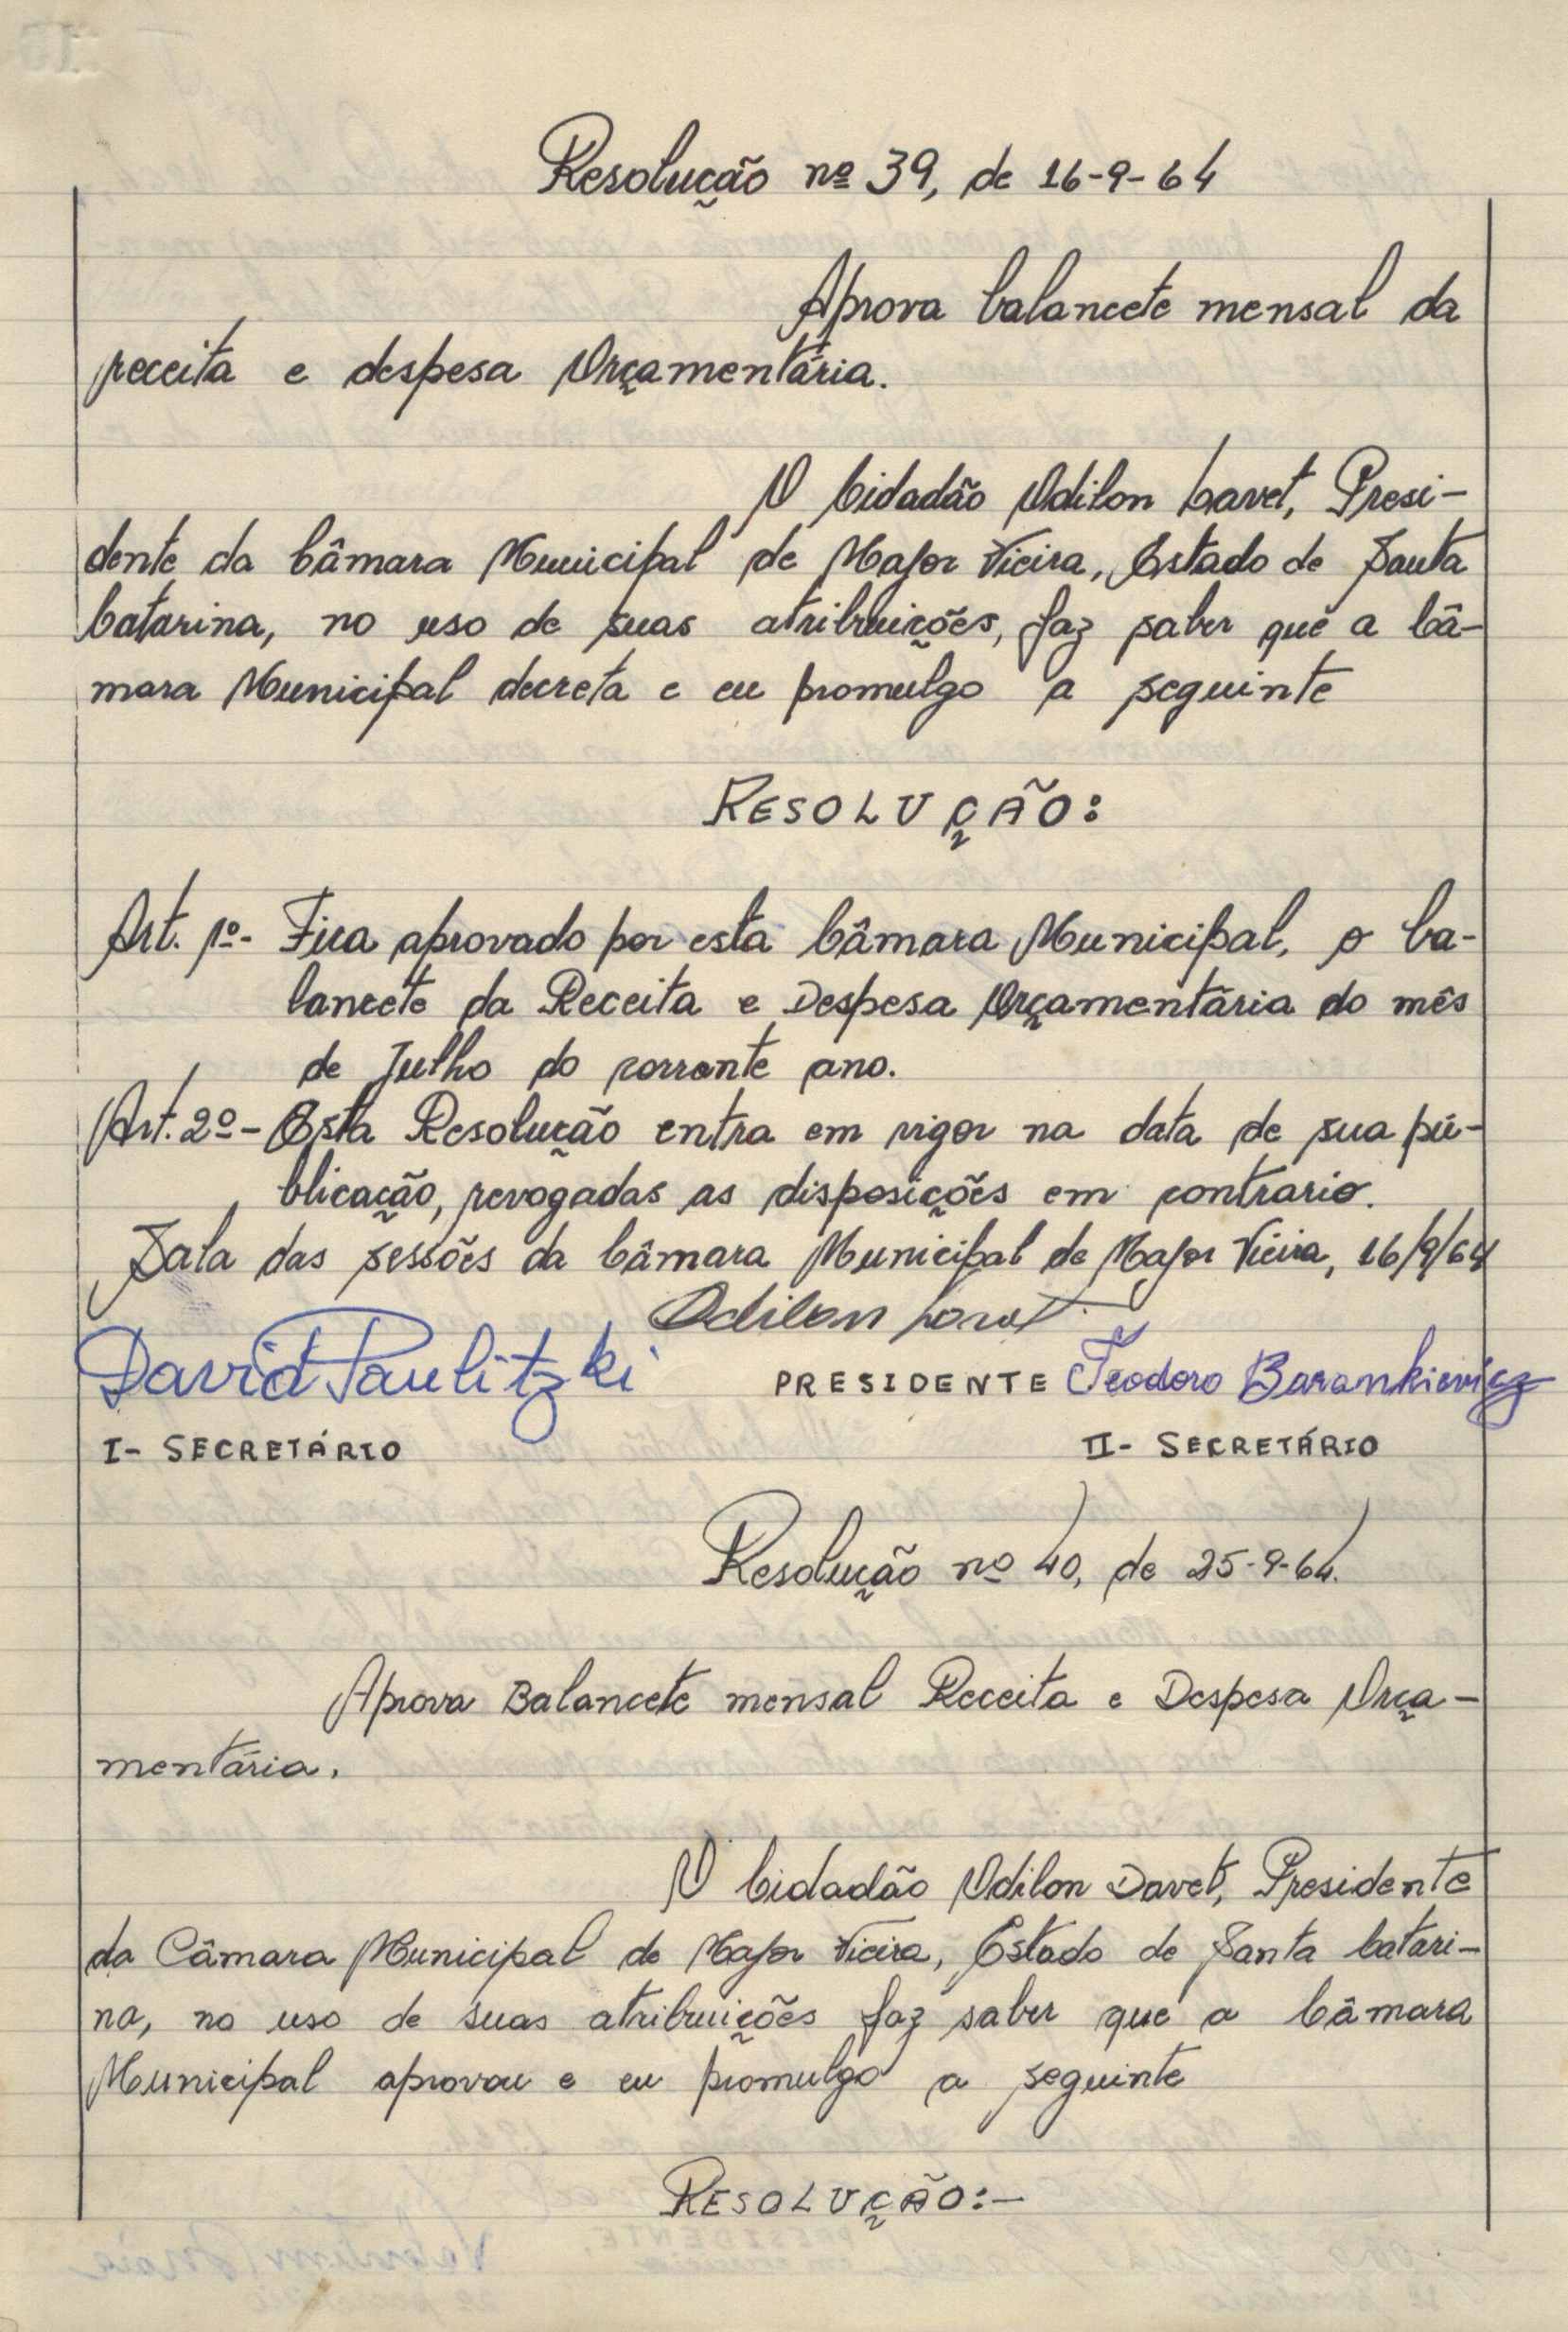 Resolução nº 39, de 16-9-64
Aprova balancete mensal da
receita e despesa Orçamentária.
O Cidadão Odilon Lavet, Presi-
dente da Câmara Municipal de Major Vieira, Estado de Santa
Catarina, no uso de suas atribuições, faz saber que a Câ-
mara Municipal decreta e eu promulgo a seguinte
RESOLUÇÃO:
Art. 1º- Fica aprovado por esta Câmara Municipal, o ba-
lancete da Receita e Despesa Orçamentária do mês
de Julho do corrente ano.
Art. 2º- Esta Resolução entra em vigor na data de sua pu-
blicação, revogadas as disposições em contrario.
Sala das sessões da Câmara Municipal de Major Vieira, 16/9/64
Odilon
David Paulitzki PRESIDENTE Teodoro Barankievicz
I- SECRETÁRIO II- SECRETÁRIO
Resolução nº 40, de 25-9-64.
Aprova Balancete mensal Receita e Despesa Orça-
mentária.
O Cidadão Odilon Davet, Presidente
da Câmara Municipal de Major Vieira, Estado de Santa Catari-
na, no uso de suas atribuições faz saber que a Câmara
Municipal aprovou e eu promulgo a seguinte
RESOLUÇÃO:-